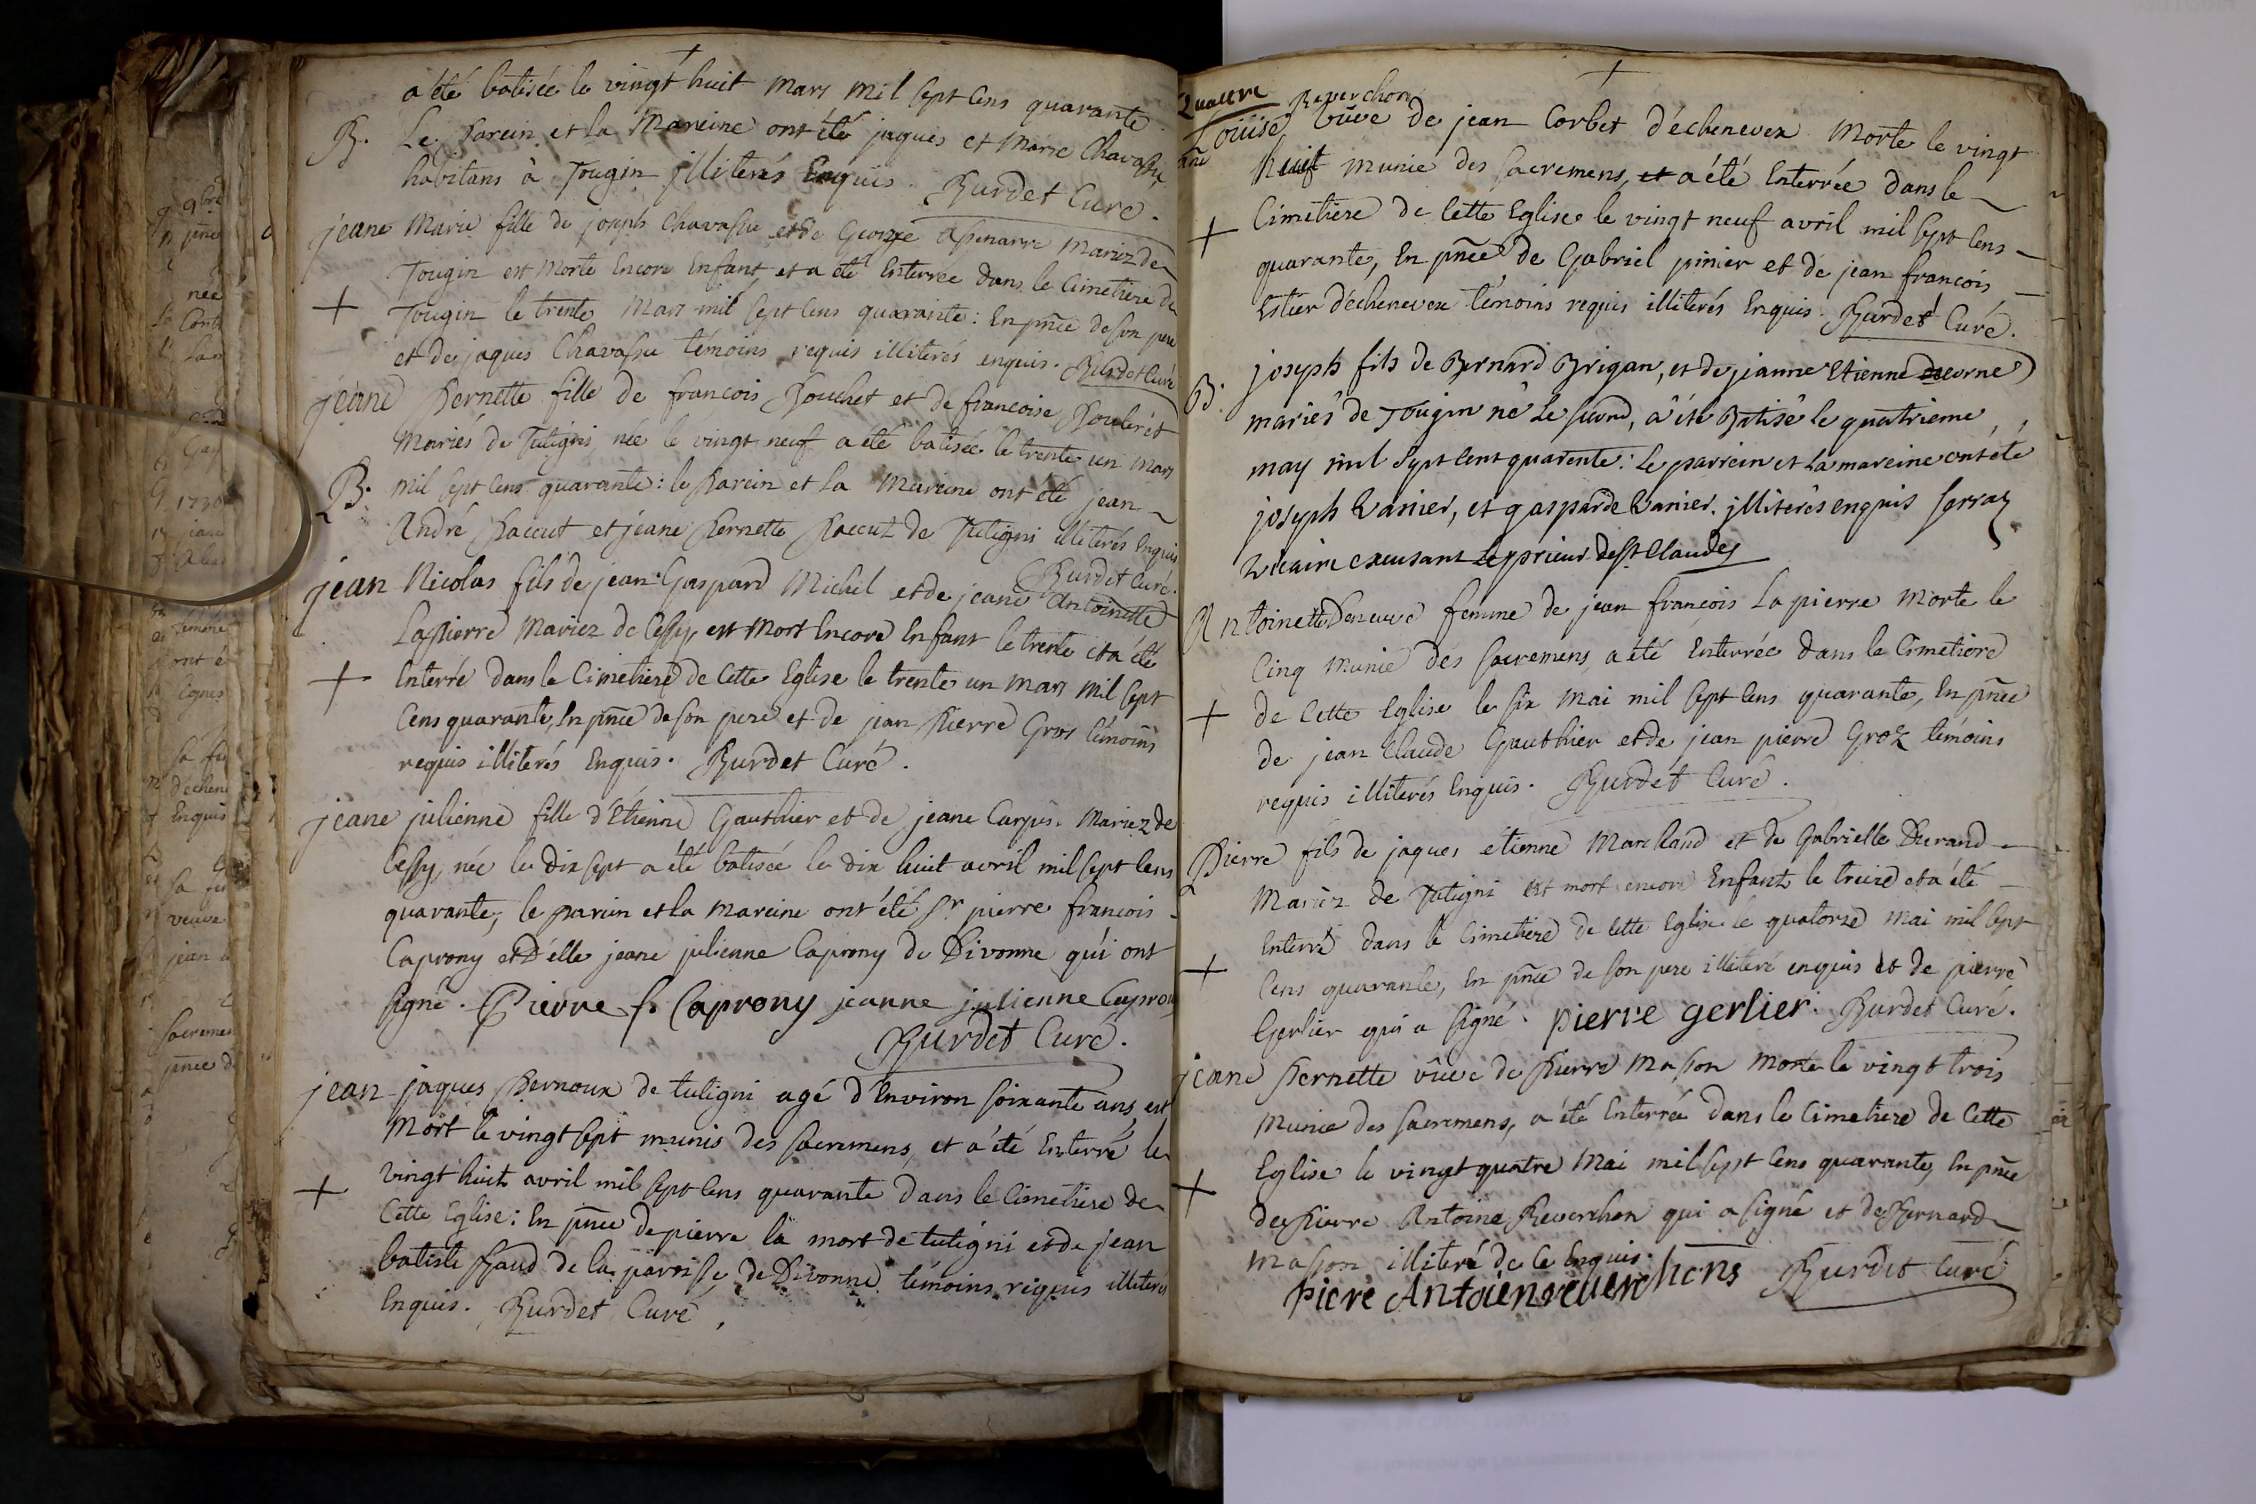 a été batisée le vingt huit mars mil sept cens quarante
B. Le parein et la Mareine ont été jaques et Marie Chavassu
habitans à Tougin illiterés Enquis. Burdet Curé.
jeane Marie fille de joseph Chavassu et de George Mariez de
Tougin est Morte Encore Enfant et a été Enterrée dans le Cimetiere de
Tougin le trente Mars mil sept cens quarante: En pñce de son pere
et de jaques Chavassu témoins requis illiterés enquis. Burdet Curé
jeane Pernette fille de francois Bouchet et de francoise
Mariés de Tutigni, née le vingt neuf a été batisée le trente un mars
B. mil sept cens quarante: le Parein et La Mareine ont été jean
André Paccut et jeane Pernette Paccut de Tutigni illiterés Enquis
Burdet Curé.
jean Nicolas fils de jean Gaspard Michel et de jeane Antoinette
Lapierre Mariez de Cessy, est Mort Encore Enfant le trente et a été
Enterré dans le Cimetiere de Cette Eglise le trente un mars mil sept
Cens quarante, En pñce de son pere et de jean Pierre Gros témoins
requis illiterés Enquis. Burdet Curé.
jeane julienne fille d'Etienne Gauthier et de jeane Mariez de
Cessy, née le dix sept a été batisée le dix huit avril mil sept cens
quarante, le parein et la mareine ont été Sr pierre francois
Caprony et Delle jeane julienne Caprony de Divonne qui ont
signé. Pierre f. Caprony jeanne julienne Caprony
Burdet Curé.
jean jaques Pernoux de tutigni agé d'Environ soixante ans, est
Mort le vingt sept munis des sacremens, et a été Enterré le
vingt huit avril mil sept cens quarante dans le Cimetiere de
Cette Eglise: En pñce de pierre la mort de tutigni et de jean
batiste de la paroisse de Divonne témoins requis illiterés
Enquis. Burdet Curé.
quatre
Reverchon
Louise vûve de jean Corbet d'échenevex Morte le vingt
huit munie des sacremens, et a été Enterrée dans le
Cimetiere de Cette Eglise le vingt neuf avril mil sept cens
quarante, En pñce de Gabriel pinier et de jean francois
Estier d'échenevex témoins requis illiterés Enquis. Burdet Curé.
joseph fils de Bernard Brigan, et de jeanne Etienne
B. mariés de Tougin né le second, a été Batisé le quatrieme
may mil sept cent quarente: Le parrein et La mareine ont été
joseph Vanier, et gasparde Vanier. illiterés enquis Serraz
vicaire excusant Le prieur de St Claude
Antoinette Deneuve femme de jean françois La pierre Morte le
Cinq munie des sacremens, a été Enterrée dans le Cimetiere
de Cette Eglise le six mai mil sept cens quarante, En pñce
de jean Claude Gauthier et de jean pierre Groz témoins
requis illiterés Enquis. Burdet Curé.
Pierre fils de jaques etienne Marchand et de Gabrielle Durand
Mariez de Tutigni est mort encore Enfant le treize et a été
Enterré dans le Cimetiere de Cette Eglise le quatorze mai mil sept
Cens quarante, En pñce de son pere illiteré enquis et de pierre
Gerlier qui a signé. pierre gerlier. Burdet Curé.
jeane Pernette vûve de Pierre Masson Morte le vingt trois
Munie des sacremens, a été Enterrée dans le Cimetiere de Cette
Eglise le vingt quatre Mai mil sept cens quarante, En pñce
de Pierre Antoine Reverchon qui a signé et de Bernard
Masson illiteré de ce Enquis.
piere Antoienreverchons Burdet Curé